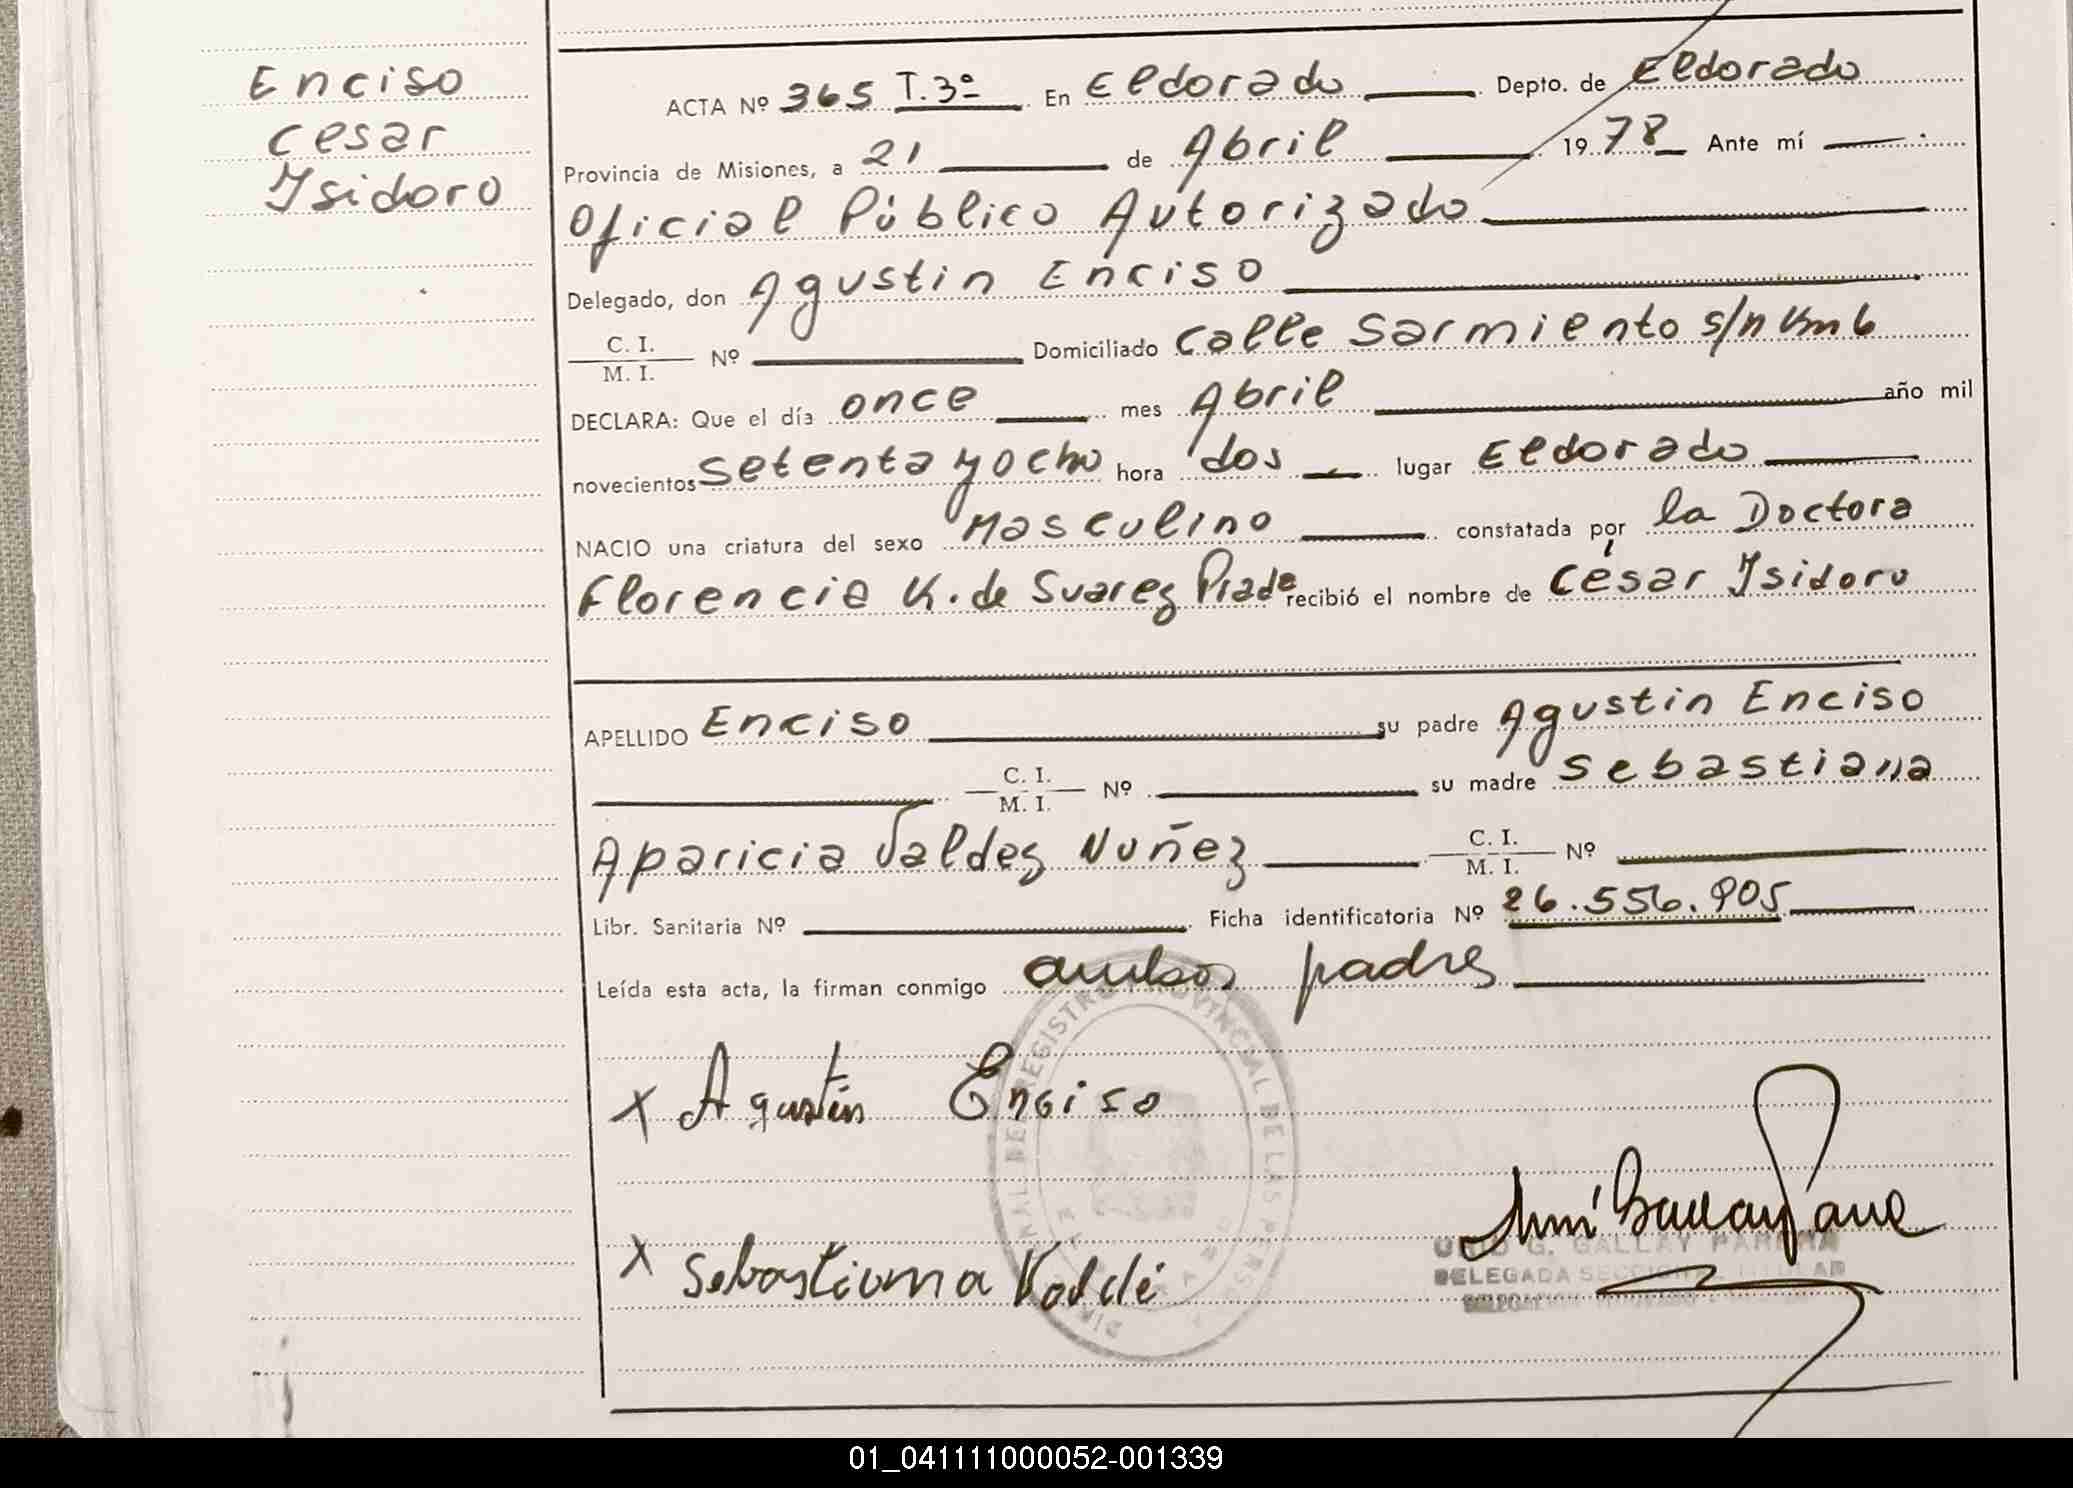 Enciso
Cesar
Ysidoro
ACTA Nº 365 T.3º En Eldorado Depto. de Eldorado
Provincia de Misiones, a 21 de Abril 1978 Ante mí
Oficial Público Autorizado
Delegado, don Agustin Enciso
C. I.
M. I. Nº Domiciliado Calle Sarmiento s/n Km 6
DECLARA: Que el día once mes Abril año mil
novecientos setenta y ocho hora dos lugar Eldorado
NACIO una criatura del sexo Masculino constatada por la Doctora
Florencia K. de Suarez recibió el nombre de César Ysidoro
APELLIDO Enciso su padre Agustin Enciso
C. I.
M. I. Nº su madre Sebastiana
Aparicia Valdez Nuñez C. I.
M. I. Nº
Libr. Sanitaria Nº Ficha identificatoria Nº 26.556.905
Leída esta acta, la firman conmigo ambos padres
REGISTRO PROVINCIAL DE LAS PERS
X Agustín Enciso
X Sebastiana
G. GALLAY
DELEGADA
01_041111000052-001339